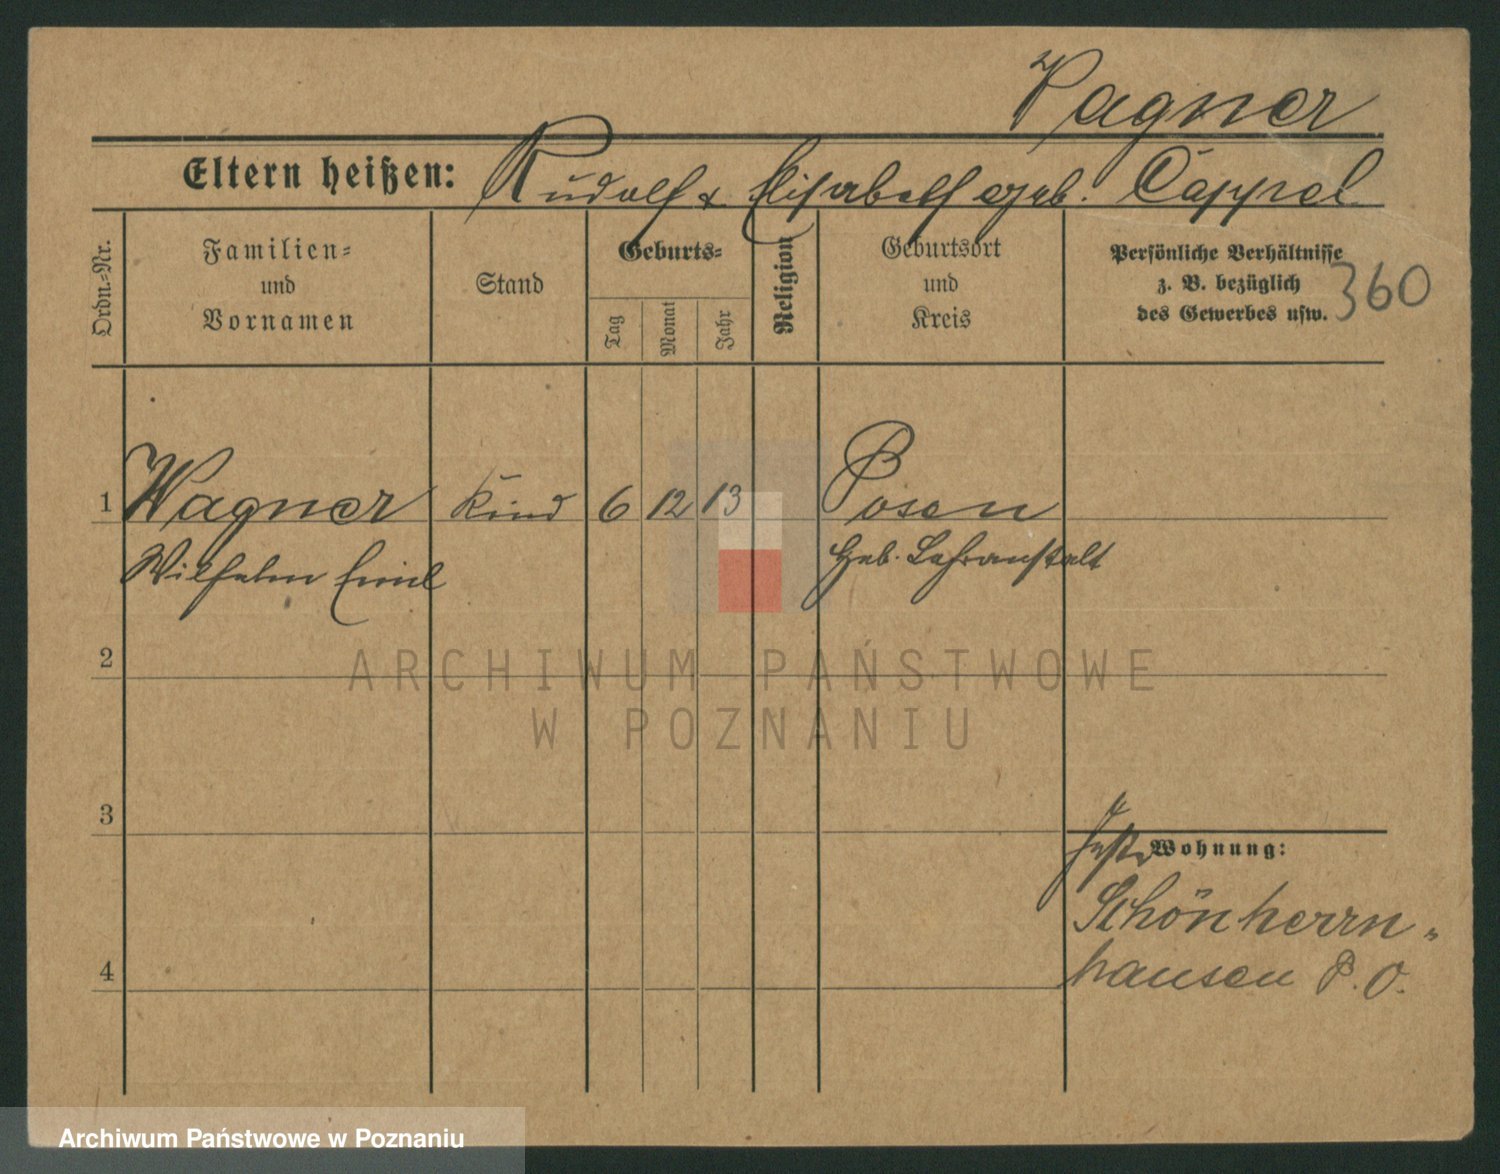 Wagner
Eltern heißen: Rudolf & Elisabeth geb. Cappel
Ordn.-Nr.
Familien- und Vornamen
Stand
Geburts-
Tag
Monat
Jahr
Religion
Geburtsort und Kreis
Persönliche Verhältnisse
z. B. bezüglich
des Gewerbes usw.
360
1 Wagner Kind 6 12 13 Posen
Wilhelm Emil Heb. Lehranstalt
2
ARCHIWUM PAŃSTWOWE
W POZNANIU
3
Wohnung:
Schönherrn-
hausen P. O.
4
Archiwum Państwowe w Poznaniu